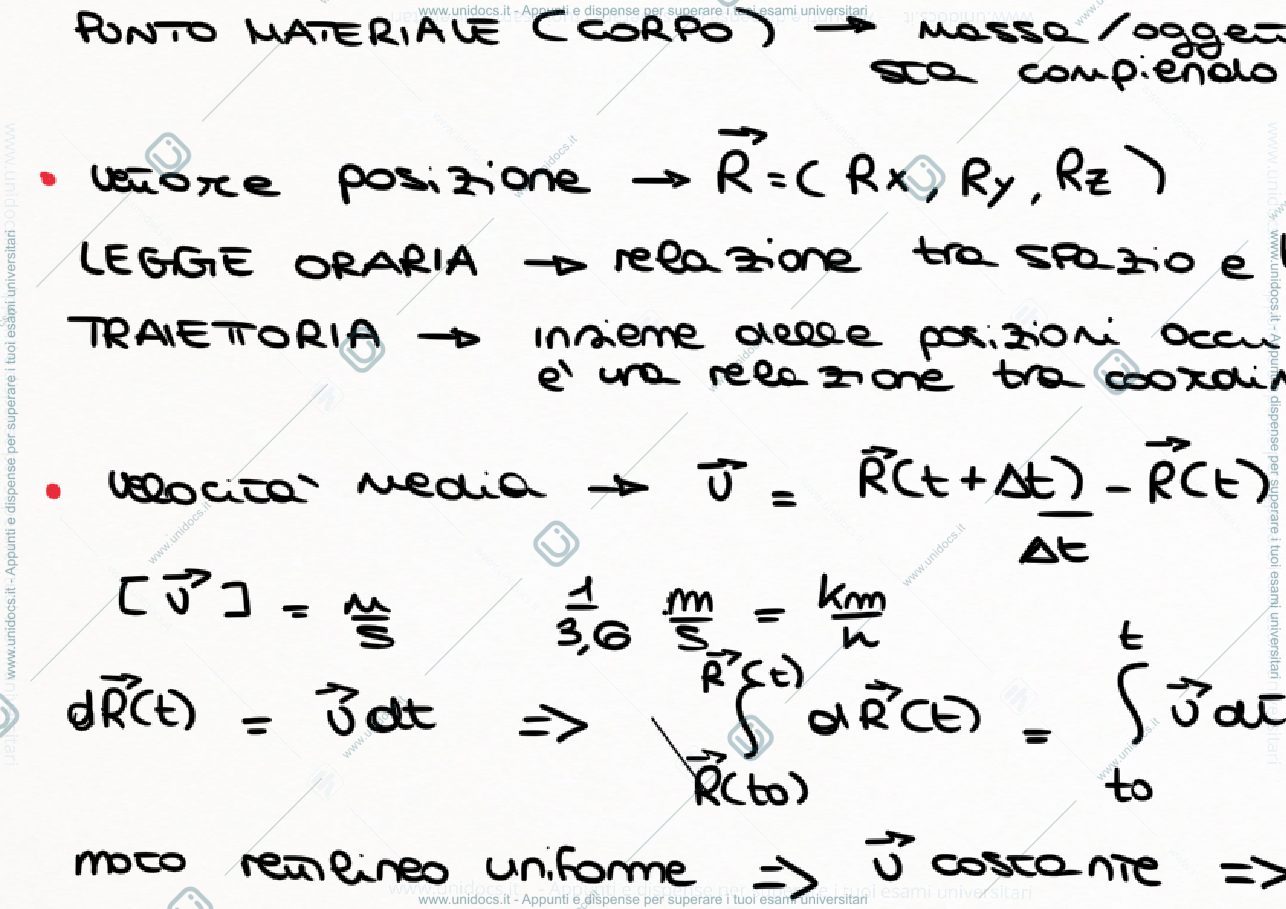 www.unidocs.it - Appunti e dispense per superare i tuoi esami universitari
PUNTO MATERIALE (CORPO) → massa/oggett
sta compiendo
• vettore posizione → R⃗ = ( Rx, Ry, Rz )
LEGGE ORARIA → relazione tra spazio e
TRAIETTORIA → insieme delle posizioni occu
e' una relazione tra coordin
• velocita' media → v⃗ = R⃗(t+Δt) - R⃗(t) / Δt
[v⃗] = m/s 1/3,6 m/s = km/h
dR⃗(t) = v⃗ dt => ∫_{R⃗(t0)}^{R⃗(t)} dR⃗(t) = ∫_{t0}^{t} v⃗ dt
moto rettilineo uniforme => v⃗ costante =>
www.unidocs.it - Appunti e dispense per superare i tuoi esami universitari